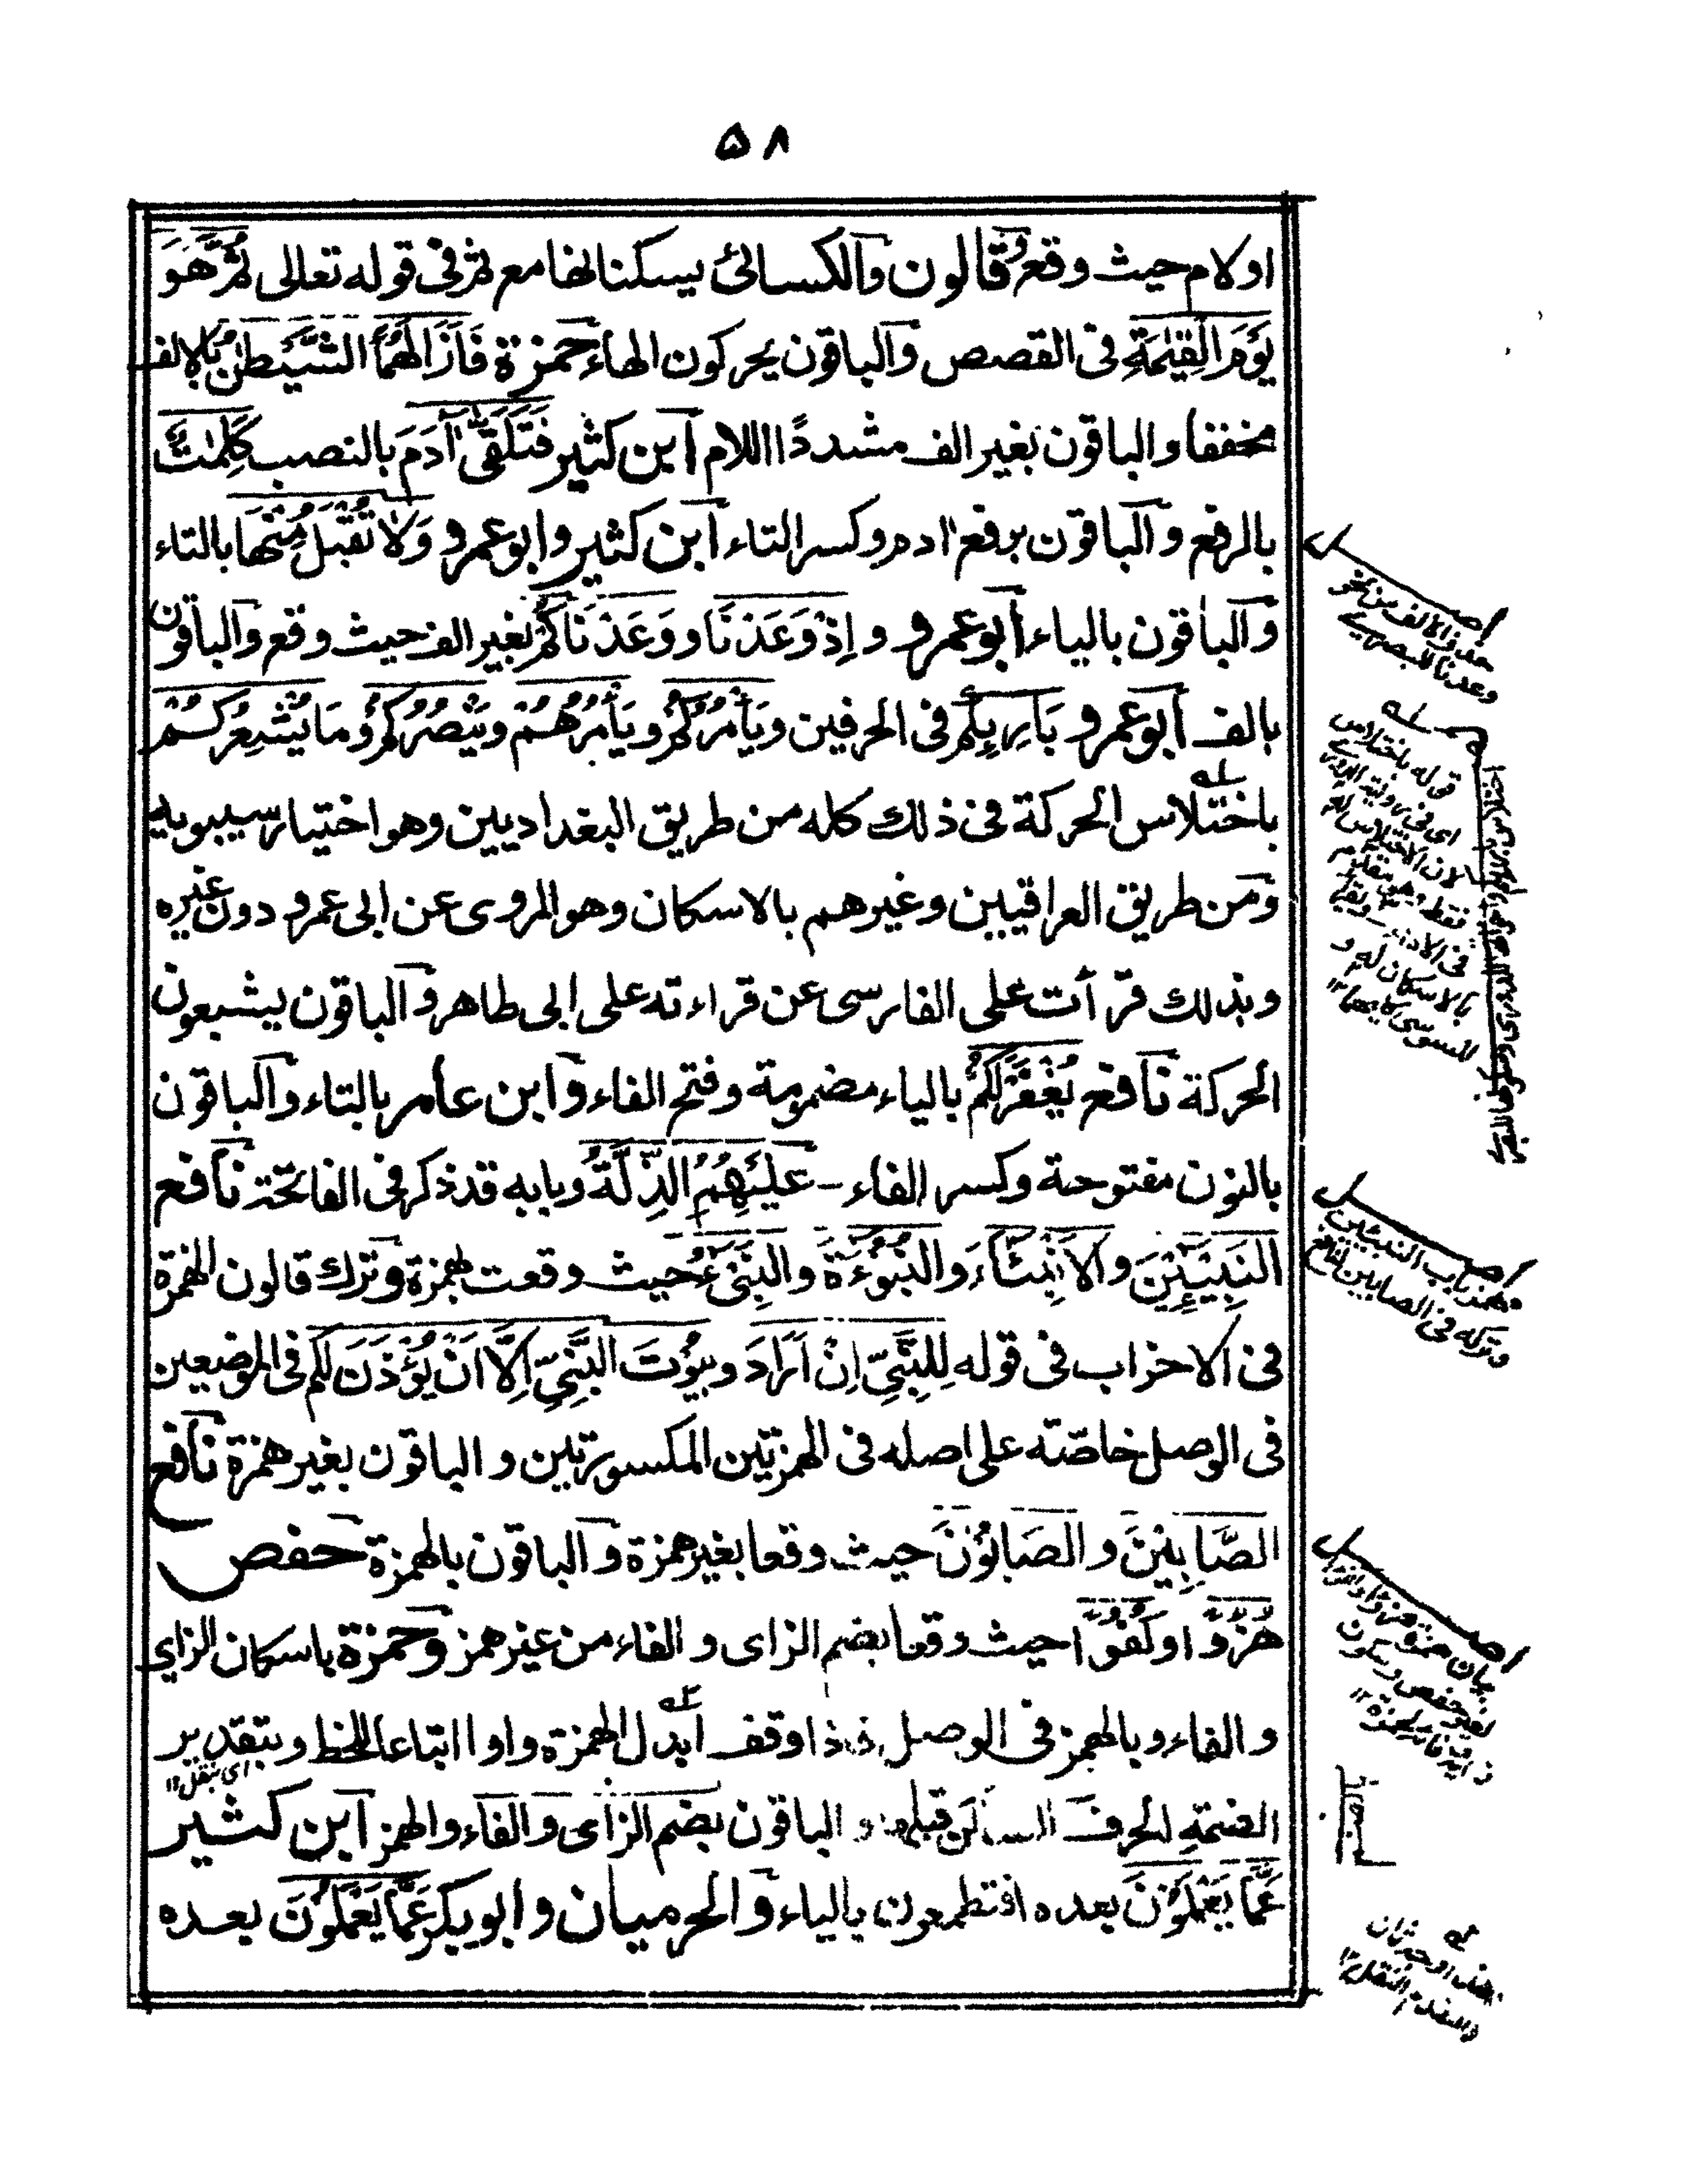 ۵۸
اولام حيث وقع وقالون والكسائى يسكنانها مع ثم فى قوله تعالى ثُمَّ هُوَ
يَوْمَ الْقِيٰمَةِ فى القصص والباقون يحركون الهاء حمزة فَاَزَالَهُمَا الشَّيْطٰنُ بالالف
مخففا والباقون بغير الف مشددًا اللام ابن كثير فَتَلَقّٰى اٰدَمَ بالنصب كَلِمٰتٌ
بالرفع والباقون برفع ادم وكسر التاء ابن كثير وابو عمرو وَلَا تُقْبَلُ مِنْهَا بالتاء
والباقون بالياء ابو عمرو وَاِذْ وَعَدْنَا و وَعَدْنَاكُمْ بغير الف حيث وقع والباقون
بالف ابو عمرو بَارِئِكُمْ فى الحرفين و يَأْمُرُكُمْ و يَأْمُرُهُمْ و يَنْصُرُكُمْ و مَا يُشْعِرُكُمْ
باختلاس الحركة فى ذلك كله من طريق البغداديين وهو اختيار سيبويه
ومن طريق العراقيين وغيرهم بالاسكان وهو المروى عن ابى عمرو دون غيره
وبذلك قرأت على الفارسى عن قراءته على ابى طاهر والباقون يشبعون
الحركة نافع يُغْفَرْ لَكُمْ بالياء مضمومة وفتح الفاء وابن عامر بالتاء والباقون
بالنون مفتوحة وكسر الفاء - عَلَيْهِمُ الذِّلَّةُ وبابه قد ذكر فى الفاتحة نافع
النَّبِيْئِيْنَ والْاَنْبِئَاءَ والنُّبُوْءَةَ والنَّبِىْءُ حيث وقعت بهمزة وترك قالون الهمزة
فى الاحزاب فى قوله لِلنَّبِيِّ اِنْ اَرَادَ و بُيُوْتَ النَّبِيِّ اِلَّا اَنْ يُؤْذَنَ لَكُمْ فى الموضعين
فى الوصل خاصّة على اصله فى الهمزتين المكسورتين و الباقون بغير همزة نافع
الصَّابِيْنَ و الصَّابُوْنَ حيث وقعا بغير همزة والباقون بالهمزة حفص
هُزُوًا و كُفُوًا حيث وقعا بضم الزاى و الفاء من غير همز وحمزة باسكان الزاى
و الفاء و بالهمز فى الوصل فاذا وقف ابدل الهمزة واوا اتباعا للخط وبتقدير
اى بنقل ۱۲
الضمة لحرف الساكن قبلها و الباقون بضم الزاى والفاء والهمز ابن كثير
عَمَّا يَعْمَلُوْنَ بعده افتطمعون بالياء والحرميان وابو بكر عَمَّا يَعْمَلُوْنَ بعده
اصل
حذف الالف من نحو
وعدنا للبصرى
قوله باختلاس
بالاسكان له و
للسوسى
اصل
همز باب النبيئين
وتركه فى الصابين لنافع
اصل
بيان همز هزوا
لغير حفص وسكون